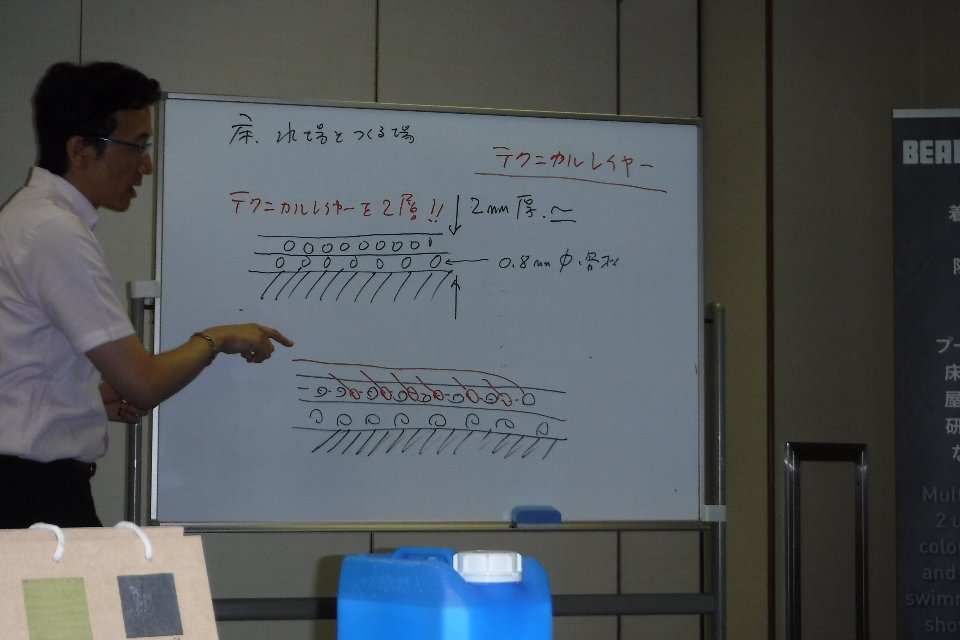 床、水場とつくる場
テクニカルレイヤー
テクニカルレイヤーを2層!!
2mm厚.〜
0.8mmφ.骨材
BEA
着
プー
床
屋
研
な
Mul
2 u
color
and
swimm
sho